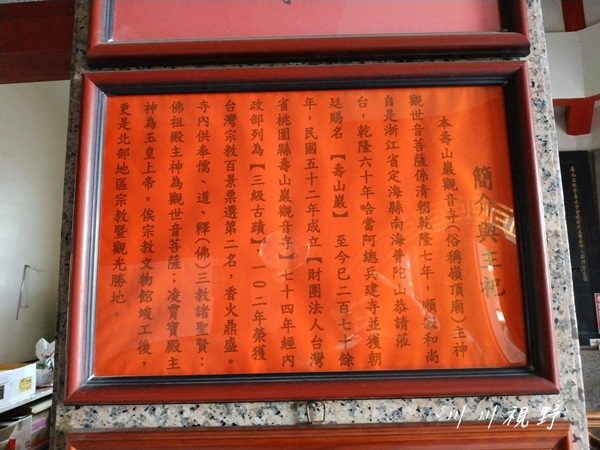 簡介與主祀
本壽山巖觀音寺(俗稱嶺頂廟)主神
觀世音菩薩係清朝乾隆七年,順叙和尚
自是浙江省定海縣南海普陀山恭請涖
台,乾隆六十年哈當阿總兵建寺並獲朝
廷賜名【壽山巖】至今已二百七十餘
年,民國五十二年成立【財團法人台灣
省桃園縣壽山巖觀音寺】七十四年經內
政部列為【三級古蹟】一〇二年榮獲
台灣宗教百景票選第二名,香火鼎盛。
寺內供奉儒、道、釋(佛)三教諸聖賢:
佛祖殿主神為觀世音菩薩;凌霄寶殿主
神為玉皇上帝。俟宗教文物館竣工後,
更是北部地區宗教暨觀光勝地。
川川視野